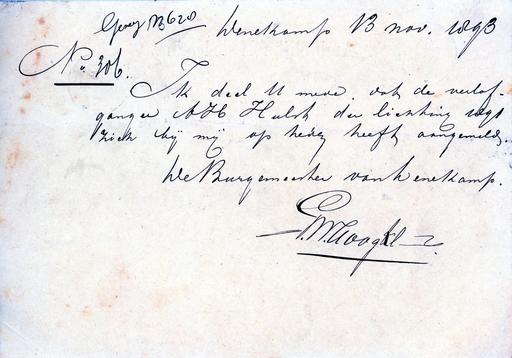 B 620 Denekamp 13 nov. 1893
No. 306.
Ik deel U mede, dat de verlof-
ganger A H Hulst der lichting 1891
zich bij mij op heden heeft aangemeld.
De Burgemeester van Denekamp.